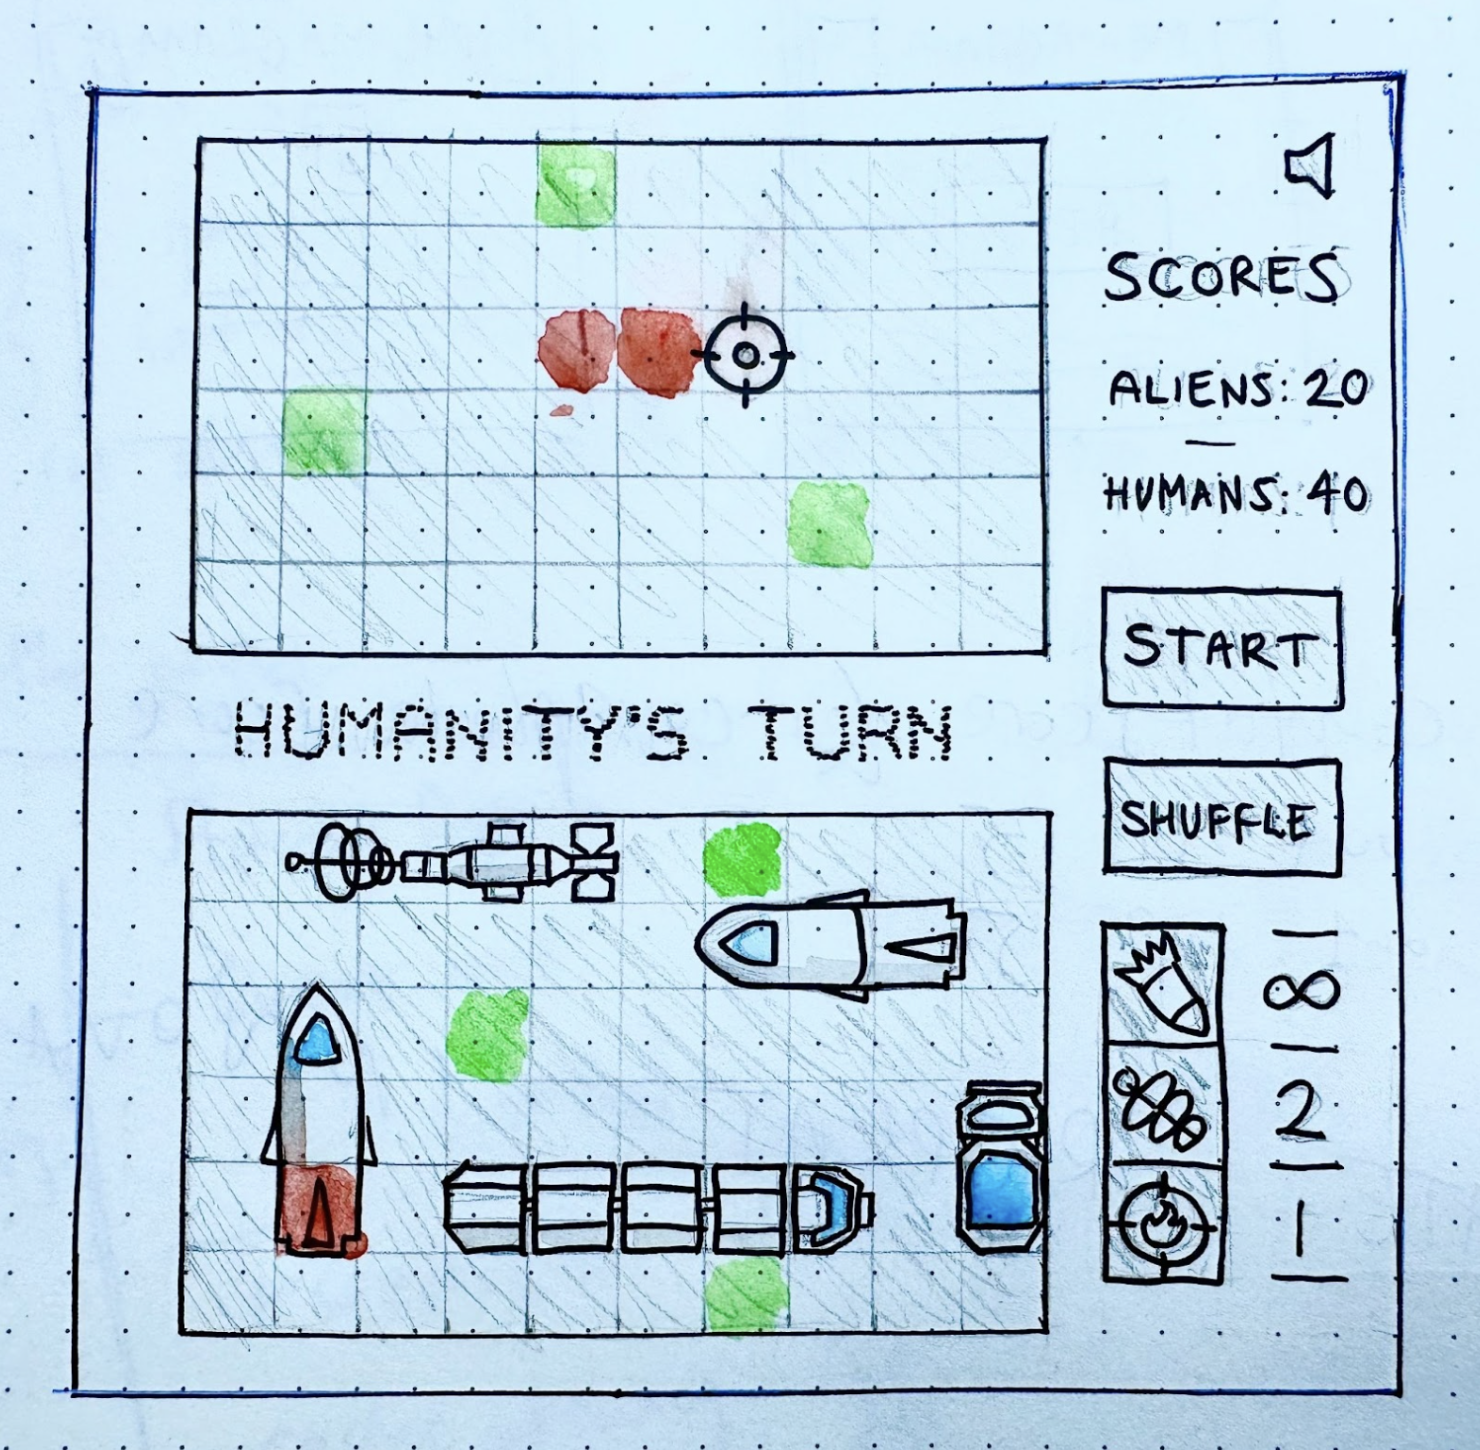 SCORES
ALIENS: 20
—
HUMANS: 40
START
HUMANITY'S TURN
SHUFFLE
∞
2
1